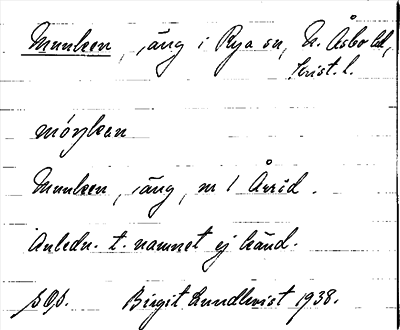 Munken, äng i Rya sn, N. Åsbo hd,
Krist. l.
móŋkan
Munken, äng, nr 1 Årrid.
Anledn. t. namnet ej känd.
Birgit Lundkvist 1938.